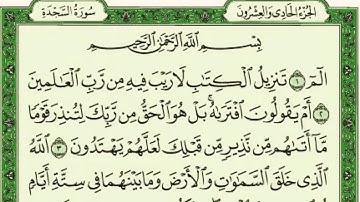 الجُزْءُ الحَادِى وَالعِشْرُونَ سُورَةُ السَّجْدَةِ
بِسْمِ اللَّهِ الرَّحْمَٰنِ الرَّحِيمِ
الٓمٓ ١ تَنزِيلُ ٱلْكِتَٰبِ لَا رَيْبَ فِيهِ مِن رَّبِّ ٱلْعَٰلَمِينَ
٢ أَمْ يَقُولُونَ ٱفْتَرَىٰهُ بَلْ هُوَ ٱلْحَقُّ مِن رَّبِّكَ لِتُنذِرَ قَوْمًا
مَّآ أَتَىٰهُم مِّن نَّذِيرٍ مِّن قَبْلِكَ لَعَلَّهُمْ يَهْتَدُونَ ٣ ٱللَّهُ
ٱلَّذِى خَلَقَ ٱلسَّمَٰوَٰتِ وَٱلْأَرْضَ وَمَا بَيْنَهُمَا فِى سِتَّةِ أَيَّامٍ